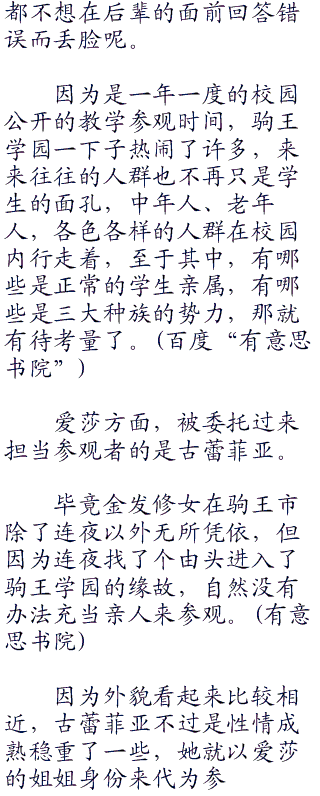 都不想在后辈的面前回答错
误而丢脸呢。
因为是一年一度的校园
公开的教学参观时间，驹王
学园一下子热闹了许多，来
来往往的人群也不再只是学
生的面孔，中年人、老年
人，各色各样的人群在校园
内行走着，至于其中，有哪
些是正常的学生亲属，有哪
些是三大种族的势力，那就
有待考量了。(百度“有意思
书院”)
爱莎方面，被委托过来
担当参观者的是古蕾菲亚。
毕竟金发修女在驹王市
除了连夜以外无所凭依，但
因为连夜找了个由头进入了
驹王学园的缘故，自然没有
办法充当亲人来参观。(有意
思书院)
因为外貌看起来比较相
近，古蕾菲亚不过是性情成
熟稳重了一些，她就以爱莎
的姐姐身份来代为参